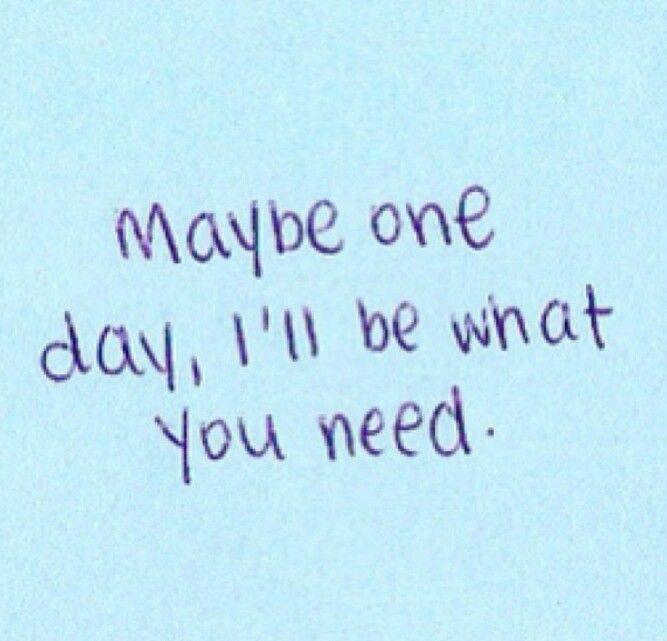 Maybe one
day, I'll be what
you need.